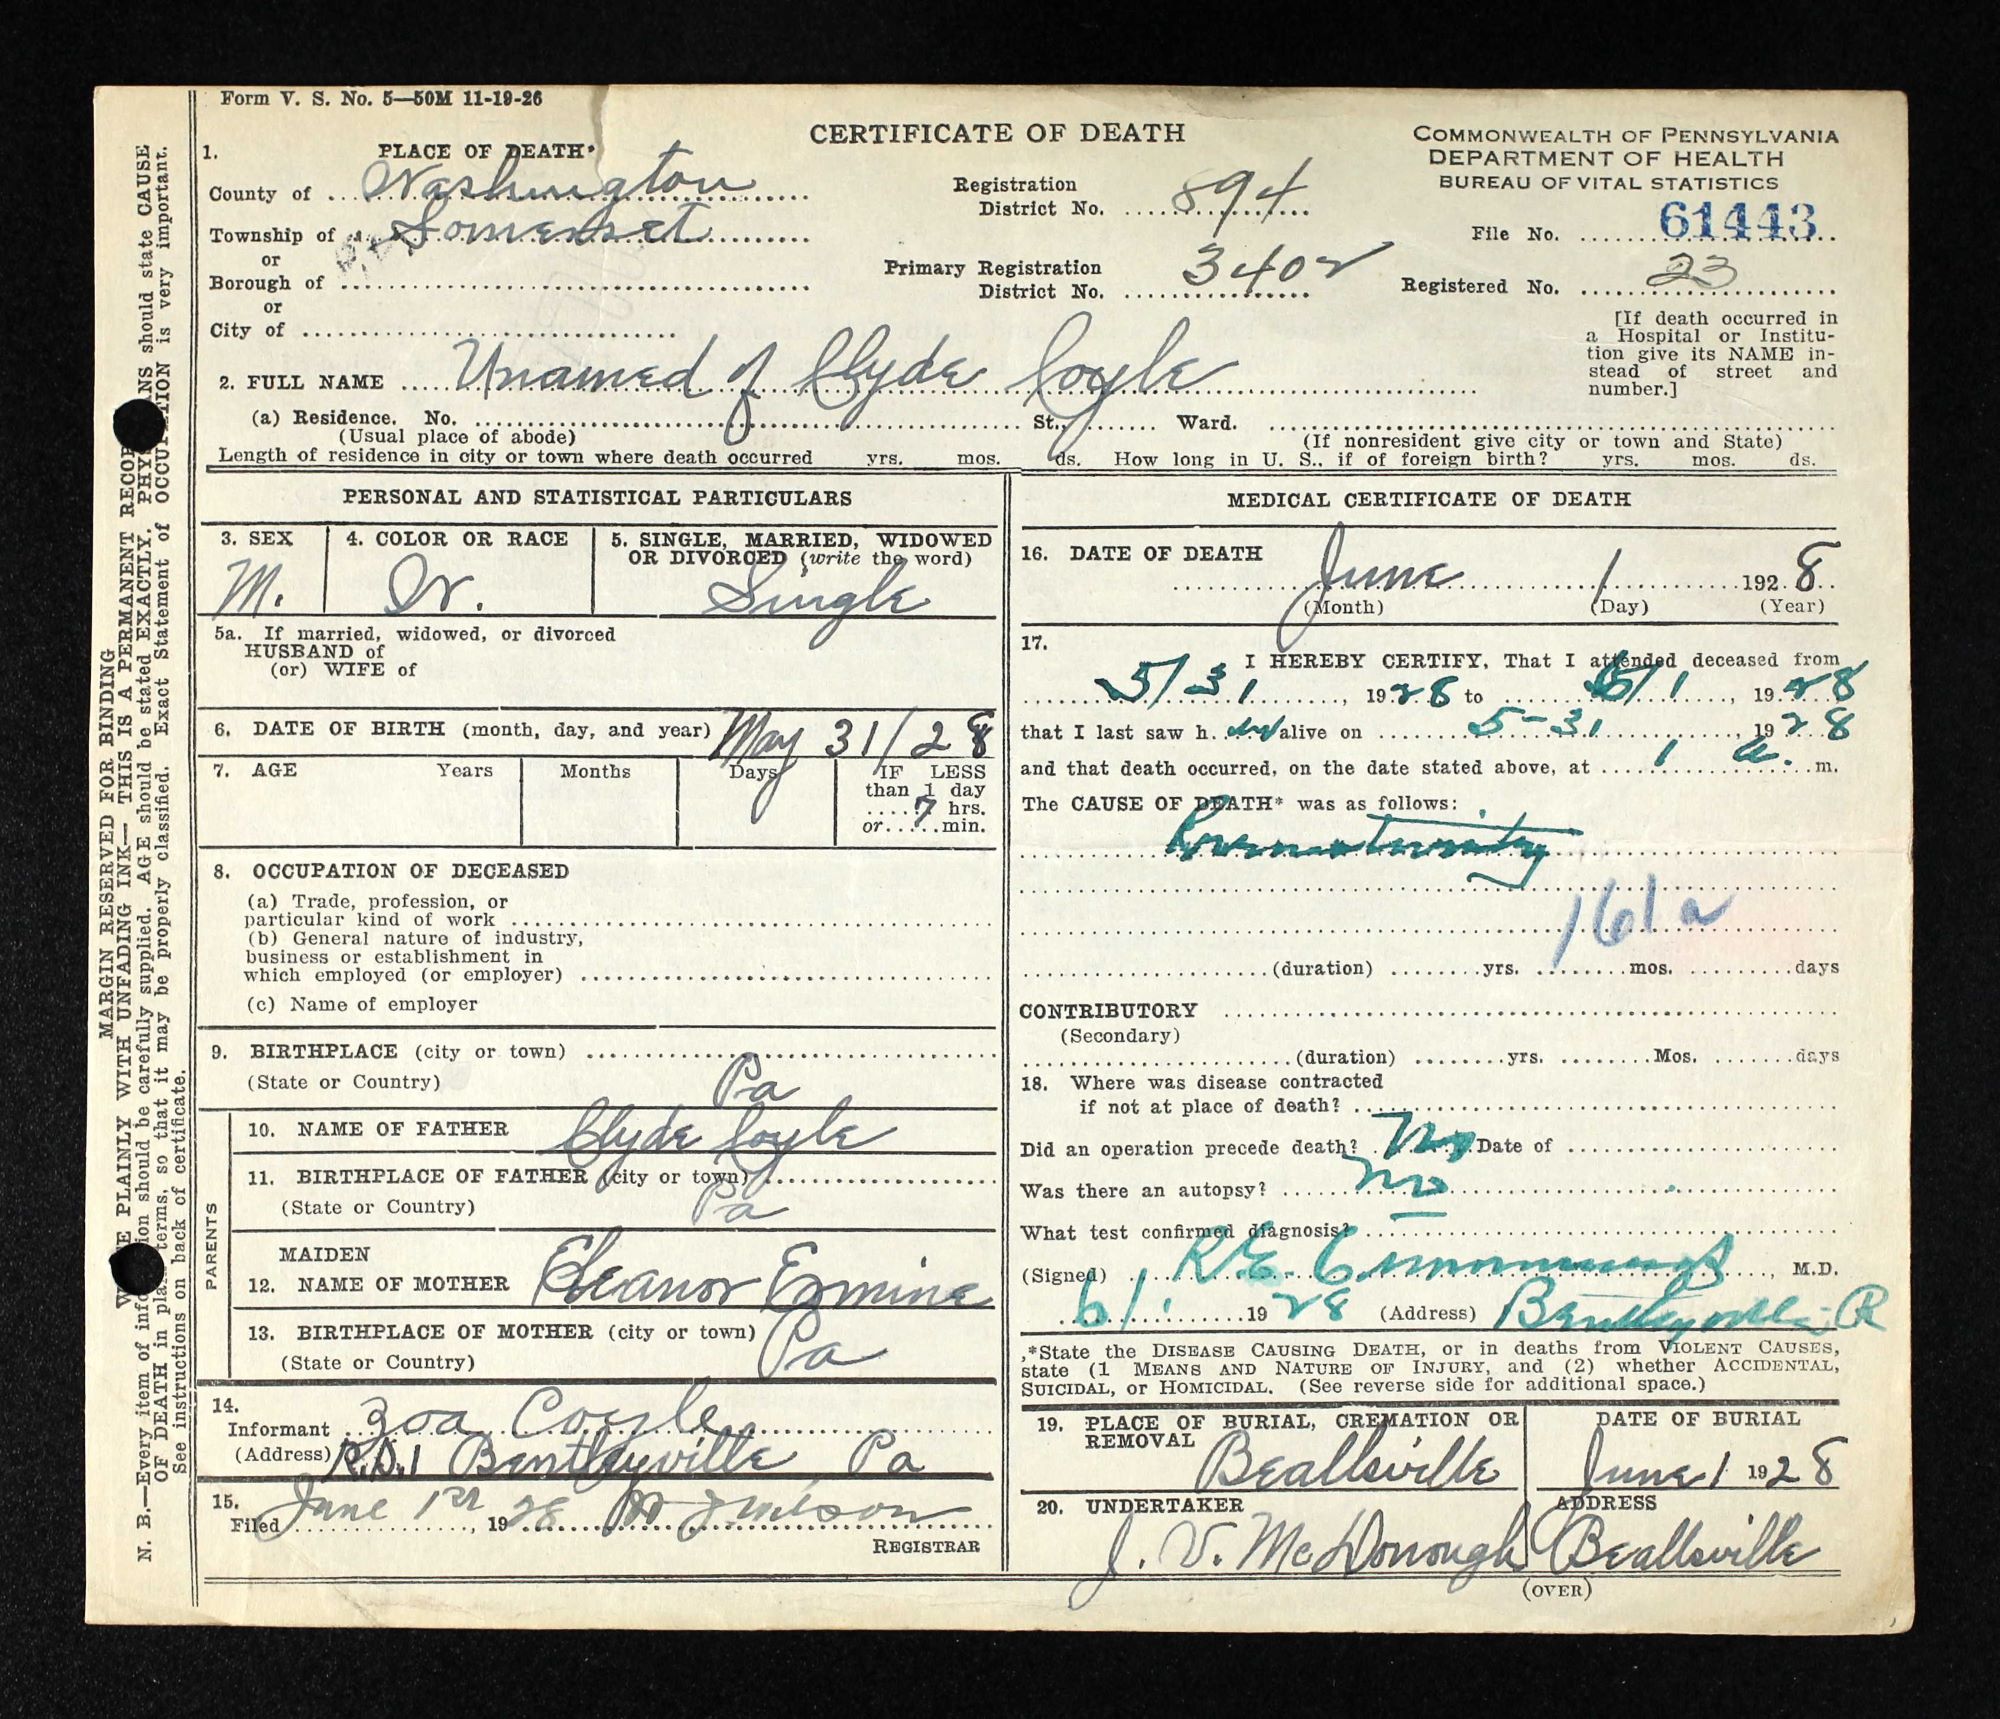 Form V. S. No. 5—50M 11-19-26
CERTIFICATE OF DEATH
COMMONWEALTH OF PENNSYLVANIA
DEPARTMENT OF HEALTH
BUREAU OF VITAL STATISTICS
1. PLACE OF DEATH*
County of Washington
Township of Somerset
or
Borough of
or
City of
Registration
District No. 894
Primary Registration
District No. 3402
File No. 61443
Registered No. 23
[If death occurred in
a Hospital or Institu-
tion give its NAME in-
stead of street and
number.]
2. FULL NAME Unamed of Clyde Coyle
(a) Residence. No. St., Ward.
(Usual place of abode) (If nonresident give city or town and State)
Length of residence in city or town where death occurred yrs. mos. ds. How long in U. S., if of foreign birth? yrs. mos. ds.
PERSONAL AND STATISTICAL PARTICULARS
3. SEX
M.
4. COLOR OR RACE
W.
5. SINGLE, MARRIED, WIDOWED
OR DIVORCED (write the word)
Single
5a. If married, widowed, or divorced
HUSBAND of
(or) WIFE of
6. DATE OF BIRTH (month, day, and year) May 31/28
7. AGE Years Months Days IF LESS
than 1 day
7 hrs.
or min.
8. OCCUPATION OF DECEASED
(a) Trade, profession, or
particular kind of work
(b) General nature of industry,
business or establishment in
which employed (or employer)
(c) Name of employer
9. BIRTHPLACE (city or town)
(State or Country) Pa
PARENTS
10. NAME OF FATHER Clyde Coyle
11. BIRTHPLACE OF FATHER (city or town)
(State or Country) Pa
MAIDEN
12. NAME OF MOTHER Eleanor Ermine
13. BIRTHPLACE OF MOTHER (city or town)
(State or Country) Pa
14.
Informant Zoa Coyle
(Address) R.D.1 Bentleyville Pa
15.
Filed June 1st, 1928 Wilson
REGISTRAR
MEDICAL CERTIFICATE OF DEATH
16. DATE OF DEATH
June 1 1928
(Month) (Day) (Year)
17.
I HEREBY CERTIFY, That I attended deceased from
5/31, 1928 to 6/1, 1928
that I last saw h im alive on 5-31, 1928
and that death occurred, on the date stated above, at 1 a. m.
The CAUSE OF DEATH* was as follows:
Prematurity
161a
(duration) yrs. mos. days
CONTRIBUTORY
(Secondary)
(duration) yrs. Mos. days
18. Where was disease contracted
if not at place of death?
Did an operation precede death? No Date of
Was there an autopsy? no
What test confirmed diagnosis?
(Signed) R. E. , M.D.
6/1. 1928 (Address) Bentleyville R
*State the DISEASE CAUSING DEATH, or in deaths from VIOLENT CAUSES,
state (1 MEANS AND NATURE OF INJURY, and (2) whether ACCIDENTAL,
SUICIDAL, or HOMICIDAL. (See reverse side for additional space.)
19. PLACE OF BURIAL, CREMATION OR
REMOVAL
Beallsville
DATE OF BURIAL
June 1 1928
20. UNDERTAKER
J. V. McDonough
ADDRESS
Beallsville
(OVER)
MARGIN RESERVED FOR BINDING
PLAINLY WITH UNFADING INK— THIS IS A PERMANENT RECOR
N. B.—Every item of info tion should be carefully supplied. AGE should be stated EXACTLY. PHY ANS should state CAUSE
OF DEATH in plai terms, so that it may be properly classified. Exact Statement of OCCUP TION is very important.
See instructions on back of certificate.